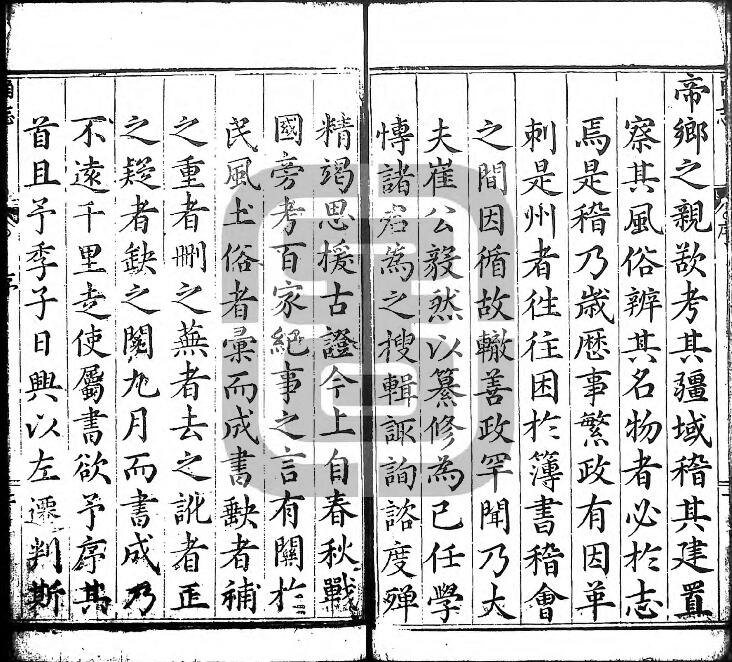 帝鄉之親欲考其疆域稽其建置
察其風俗辨其名物者必於志
焉是稽乃歲歷事繁政有因革
刺是州者徃往困於簿書稽會
之間因循故轍善政罕聞乃大
夫崔公毅然以纂修為已任學
慱諸君為之搜輯諏詢諮度殫
精竭思援古證今上自春秋戰
國旁考百家紀事之言有關於
民風土俗者彙而成書缺者補
之重者刪之蕪者去之訛者正
之疑者缺之閱九月而書成乃
不遠千里走使屬書欲予序其
首且予季子日興以左遷判斯